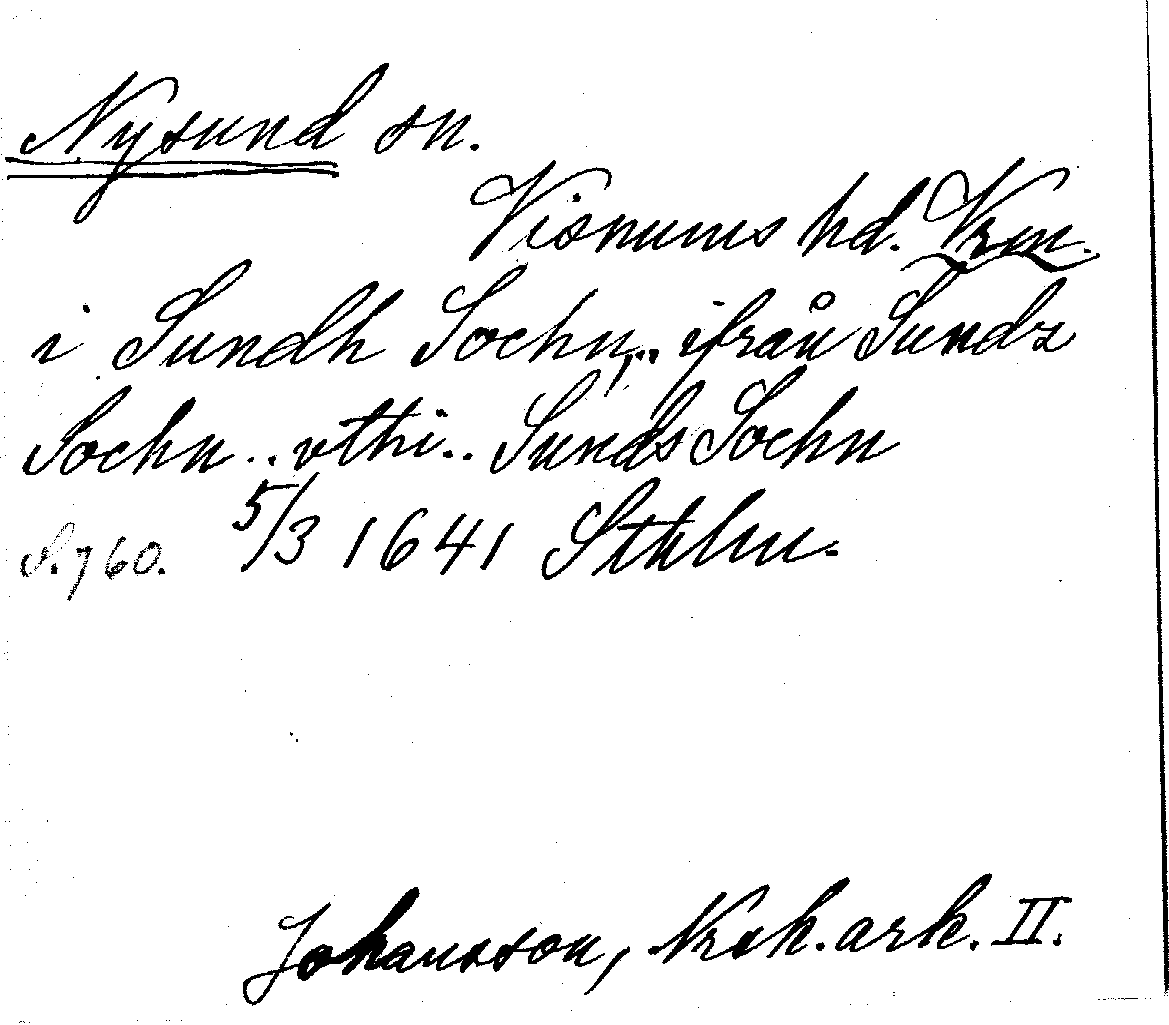 Nysund sn.
Visnums hd. Vrm.
i Sundh Sochn,.. ifrån Sundz
Sochn .. vthi .. Sunds Sochn
S. 760. 5/3 1641 Sthlm.
Johansson, Nrsk. ark. II.